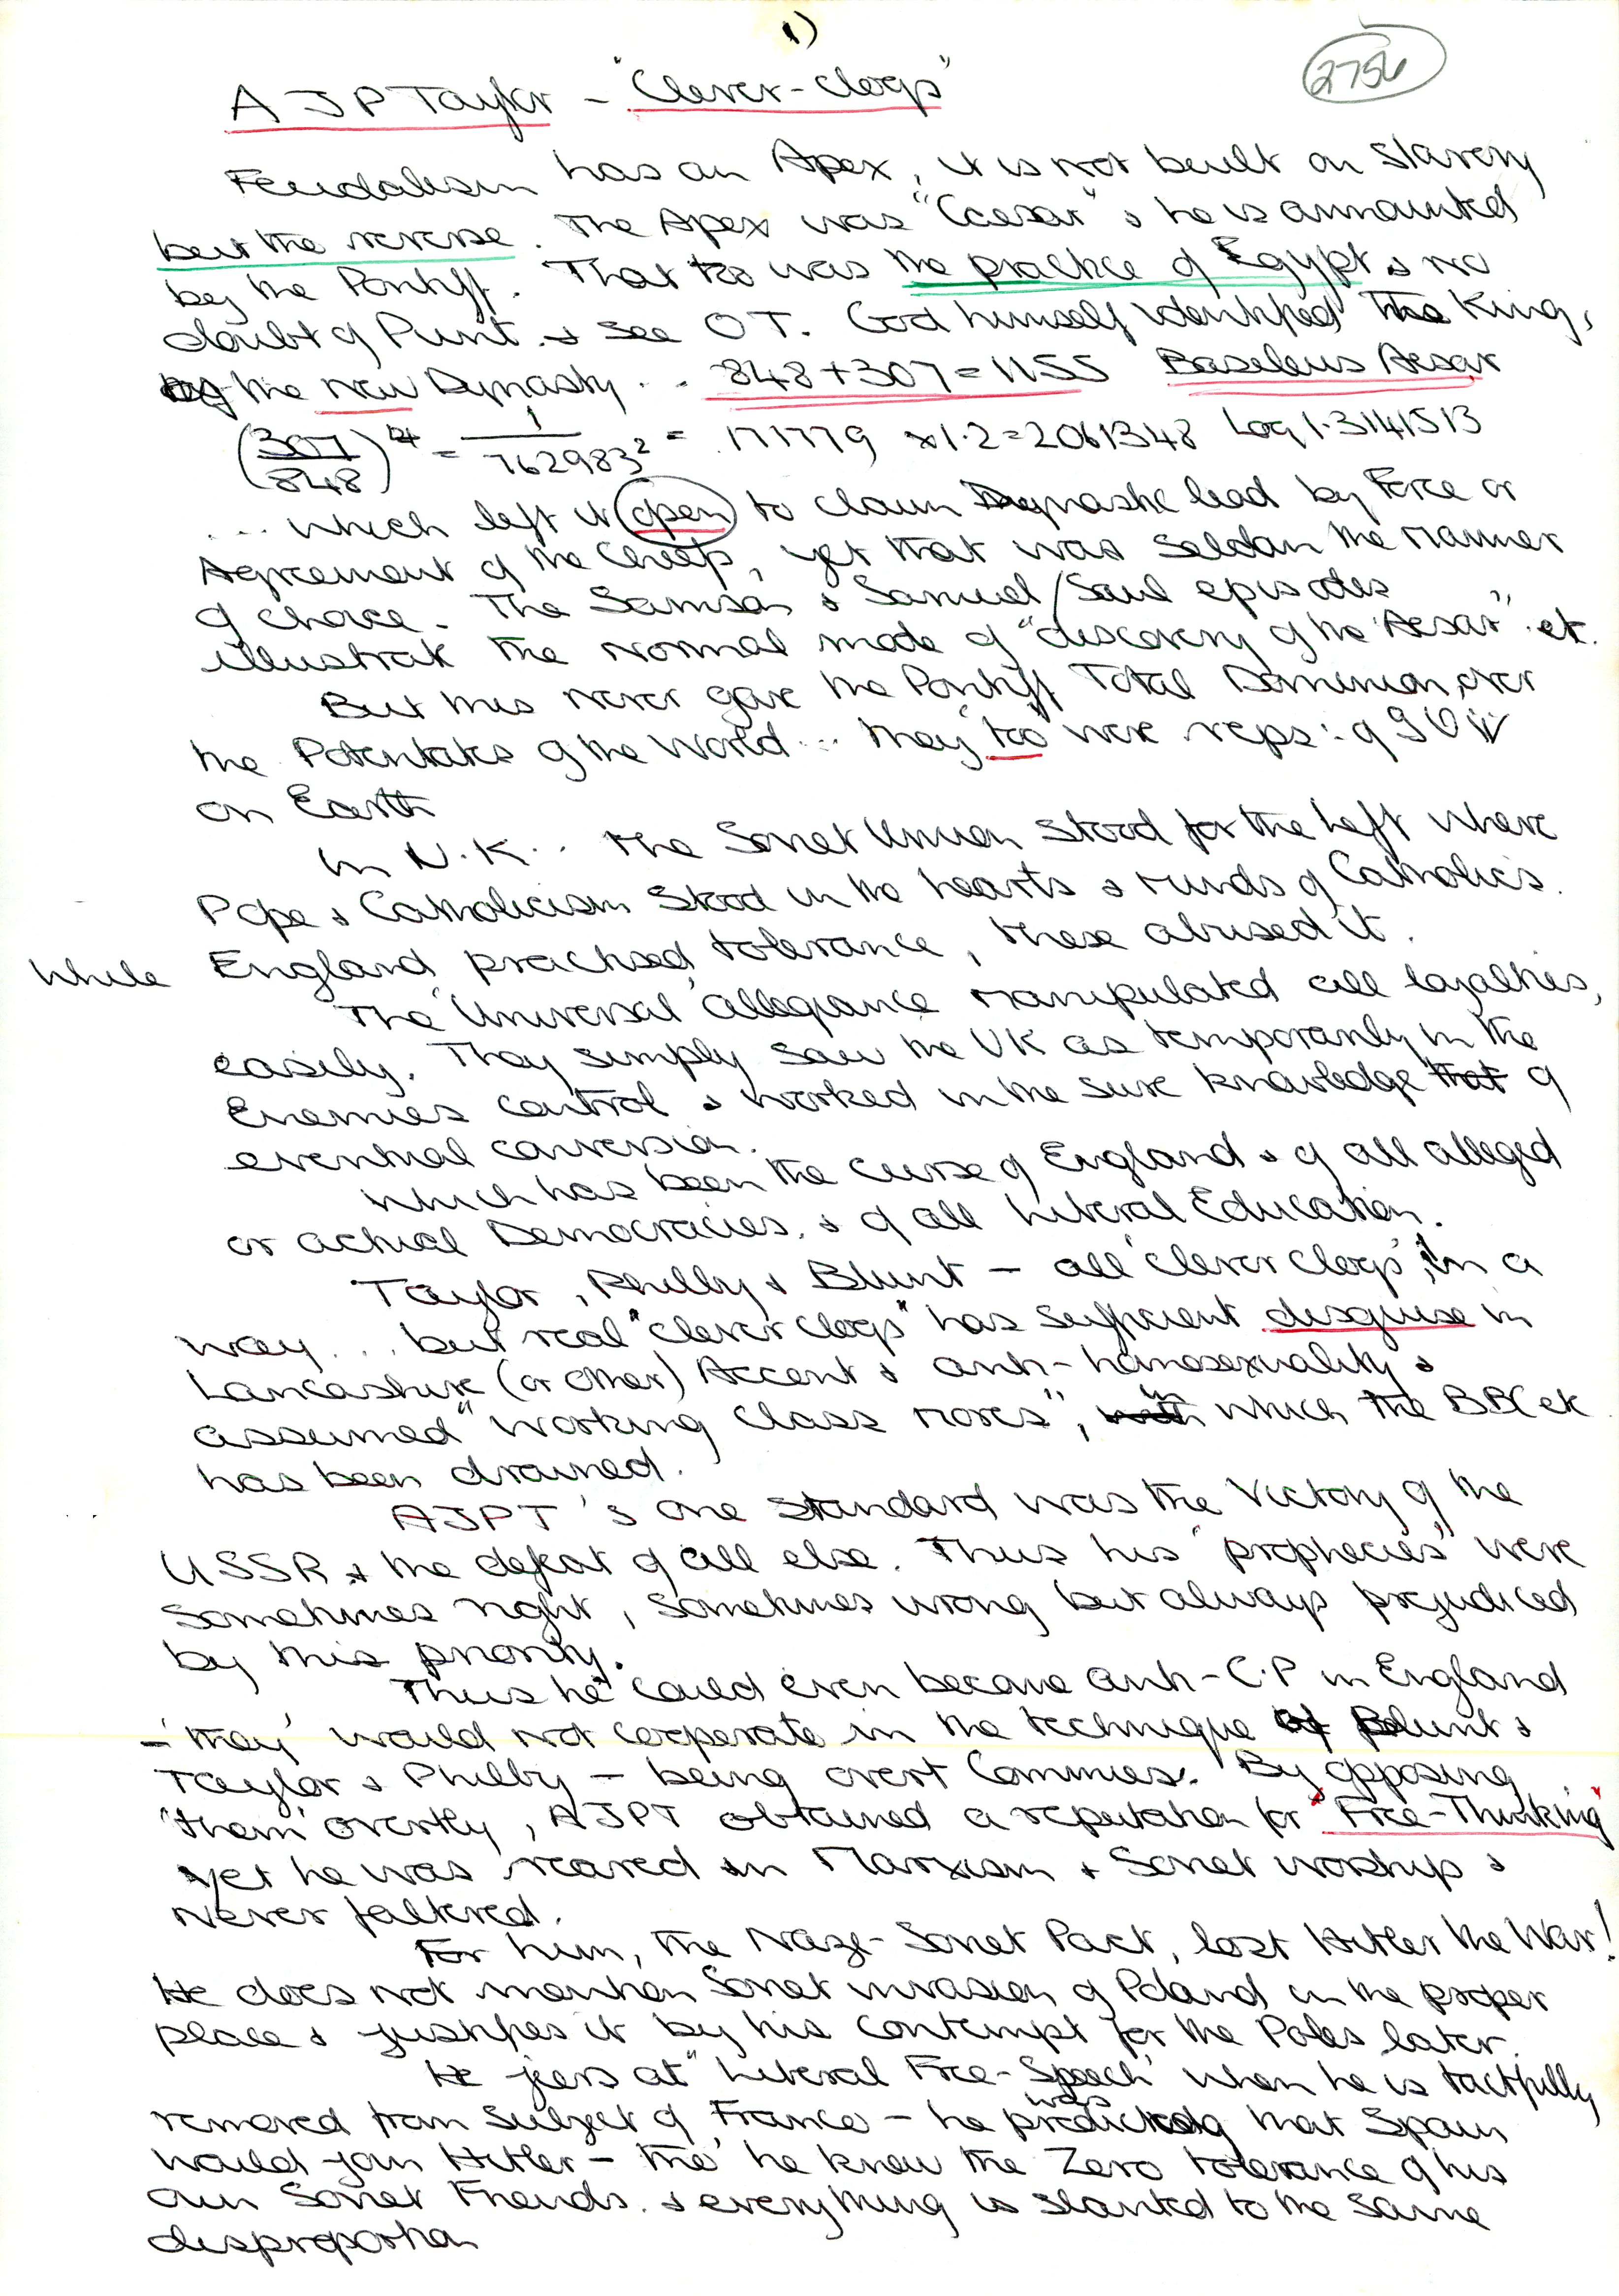 1)
2756
A J P Taylor - "Clever-Clogs"
Feudalism has an Apex, it is not built on Slavery
but the reverse. The Apex was "Caesar" & he is annointed
by the Pontiff. That too was the practice of Egypt & no
doubt of Punt. & see OT. God himself identified the King,
the new Dynasty... 848+307=1155 Basileus Aesar
(307/848)^4 = 1/.762983² = .171779 x1.2=2061348 Log 1.3141513
... which left it open to claim Dynastic lead by Force or
Agreement of the Chiefs, yet that was seldom the manner
of choice. The Samson & Samuel/Saul episodes
illustrate the normal mode of "discovery of the Aesar" etc.
But this never gave the Pontiff Total Dominion over
the Potentates of the World... they 'too' were reps: of
on Earth
In N.K.. the Soviet Union stood for the Left where
Pope & Catholicism stood in the hearts & minds of Catholics.
While England practised tolerance, these abused it.
The 'Universal' allegiance manipulated all loyalties,
easily. They simply saw the UK as temporarily in the
Enemies control & worked in the sure knowledge that of
eventual conversion.
Which has been the curse of England & of all alleged
or actual Democracies. & of all Liberal Education.
Taylor, Philby & Blunt - all 'clever clogs', in a
way... but real "clever clogs" has sufficient disguise in
Lancashire (or other) Accent & anti-homosexuality &
assumed "working class mores", with in which the BBC etc
has been drained.
AJPT's one standard was the Victory of the
USSR & the defeat of all else. Thus his "prophecies" were
sometimes right, sometimes wrong but always prejudiced
by this priority.
Thus he could even become anti-C.P in England
- 'they' would not cooperate in the technique of Blunt &
Taylor & Philby - being overt Commies. By opposing
'them' overtly, AJPT obtained a reputation for "Free-Thinking"
yet he was reared in Marxism & Soviet worship &
never faltered.
For him, the Nazi-Soviet Pact, lost Hitler the War!
He does not mention Soviet invasion of Poland in the proper
place & justifies it by his contempt for the Poles later.
He jeers at "Liberal Free-Speech" when he is tactfully
removed from subject of France - he was predicting that Spain
would join Hitler - tho' he knew the Zero tolerance of his
own Soviet Friends. & everything is slanted to the same
disproportion